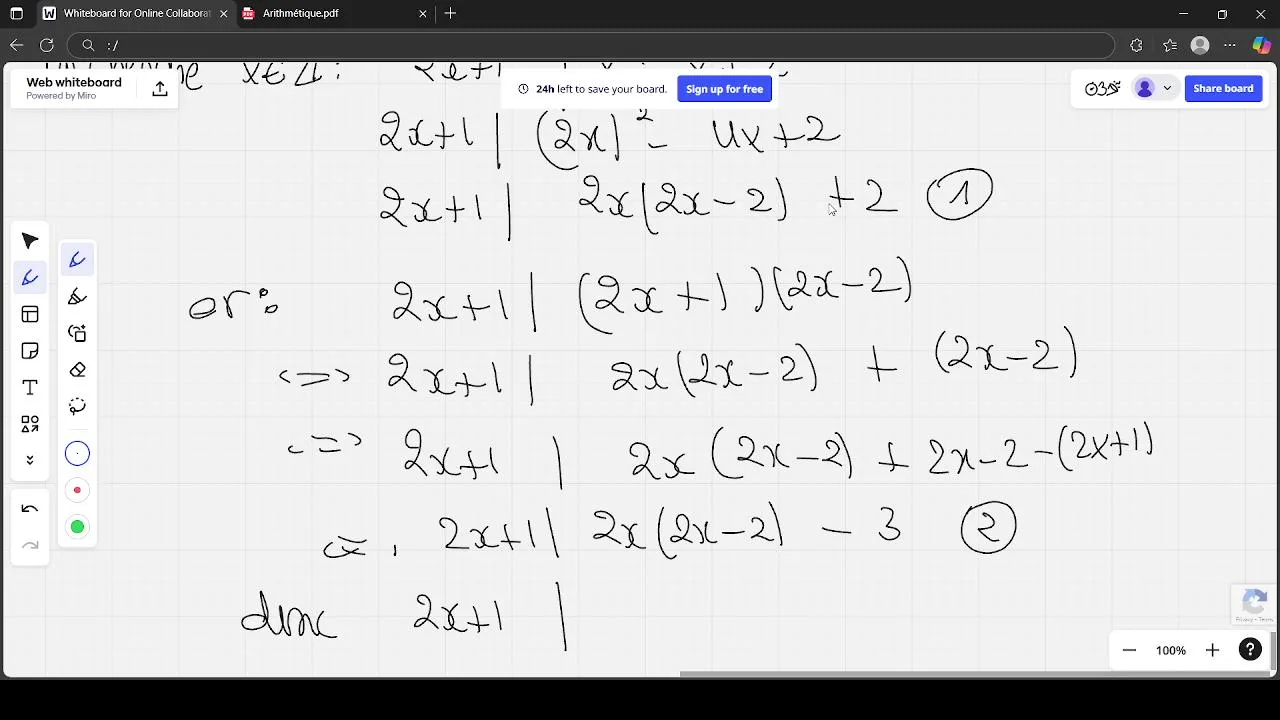 Whiteboard for Online Collaborat
Arithmétique.pdf
:/
Web whiteboard
Powered by Miro
24h left to save your board.
Sign up for free
Share board
2x+1 | (2x)² - 4x+2
2x+1 | 2x(2x-2) +2 ①
or: 2x+1 | (2x+1)(2x-2)
<=> 2x+1 | 2x(2x-2) + (2x-2)
<=> 2x+1 | 2x(2x-2) + 2x-2-(2x+1)
2x+1 | 2x(2x-2) - 3 ②
donc 2x+1 |
Privacy - Terms
100%